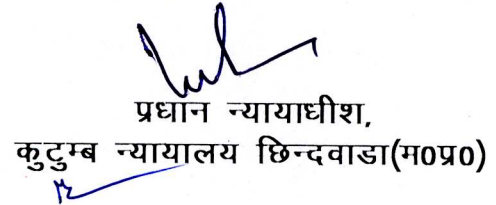 प्रधान न्यायाधीश,
कुटुम्ब न्यायालय छिन्दवाडा(म0प्र0)